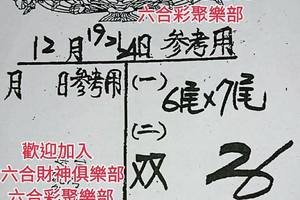 六合彩聚樂部
12月19 21 24日参考用
月 日参考用
(一)
6尾x7尾
(二)
双 26
歡迎加入
六合財神俱樂部
六合彩聚樂部